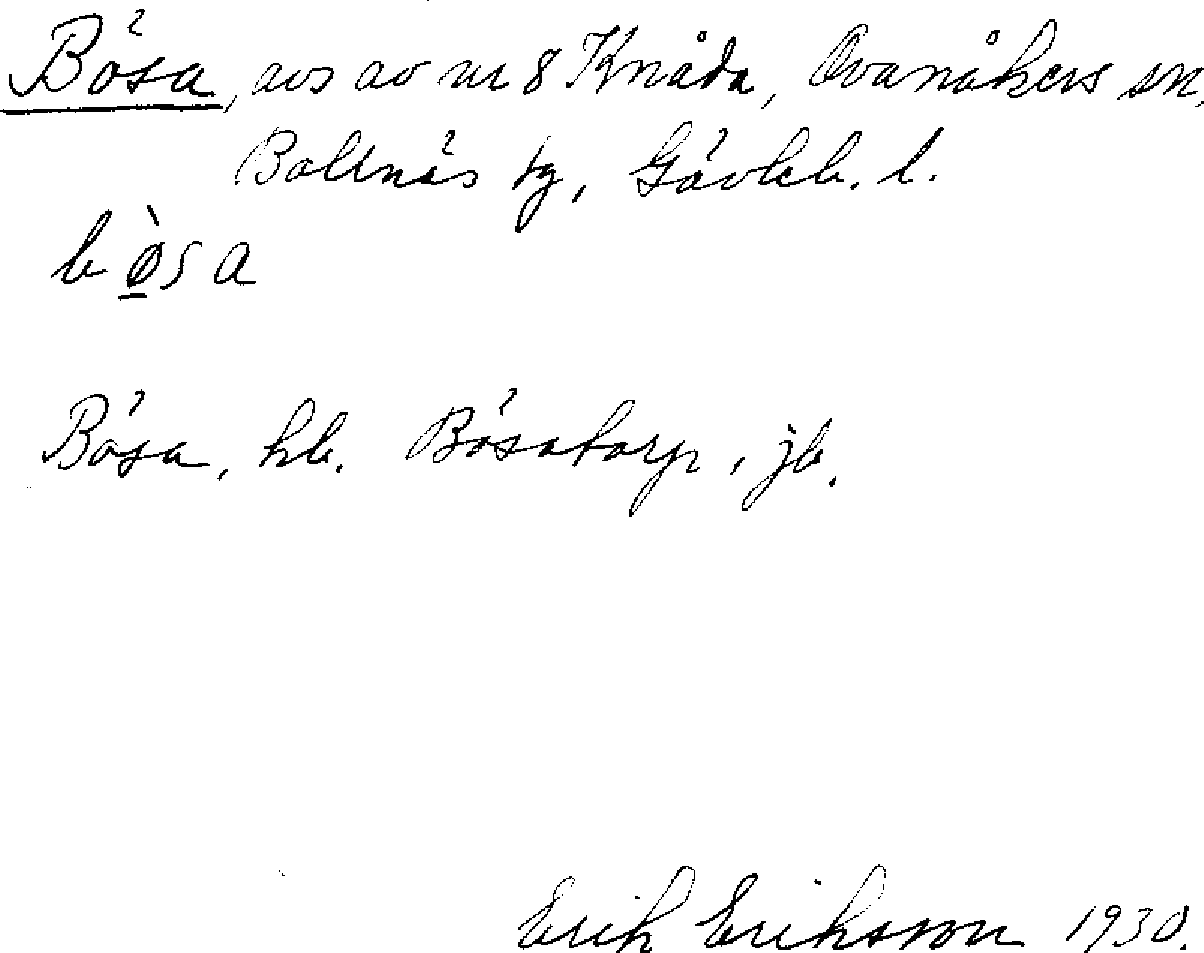 Bösa, avs av nr 8 Knåda, Ovanåkers sn,
Bollnäs tg, Gävleb. l.
bø̀sa
Bösa, hb. Bösatorp, jb.
Erik Eriksson 1930.